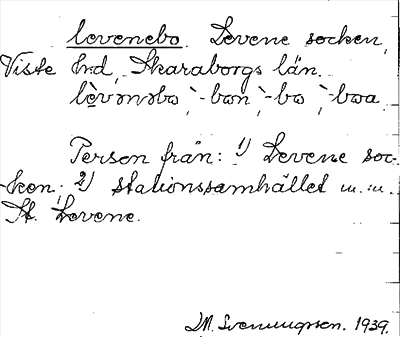 levenebo. Levene socken,
Viste hd, Skaraborgs län.
lèvənəbo, -bon, -bo, -boa
Person från: 1) Levene soc-
ken. 2) stationssamhället m.m.
St. Levene.
1939.